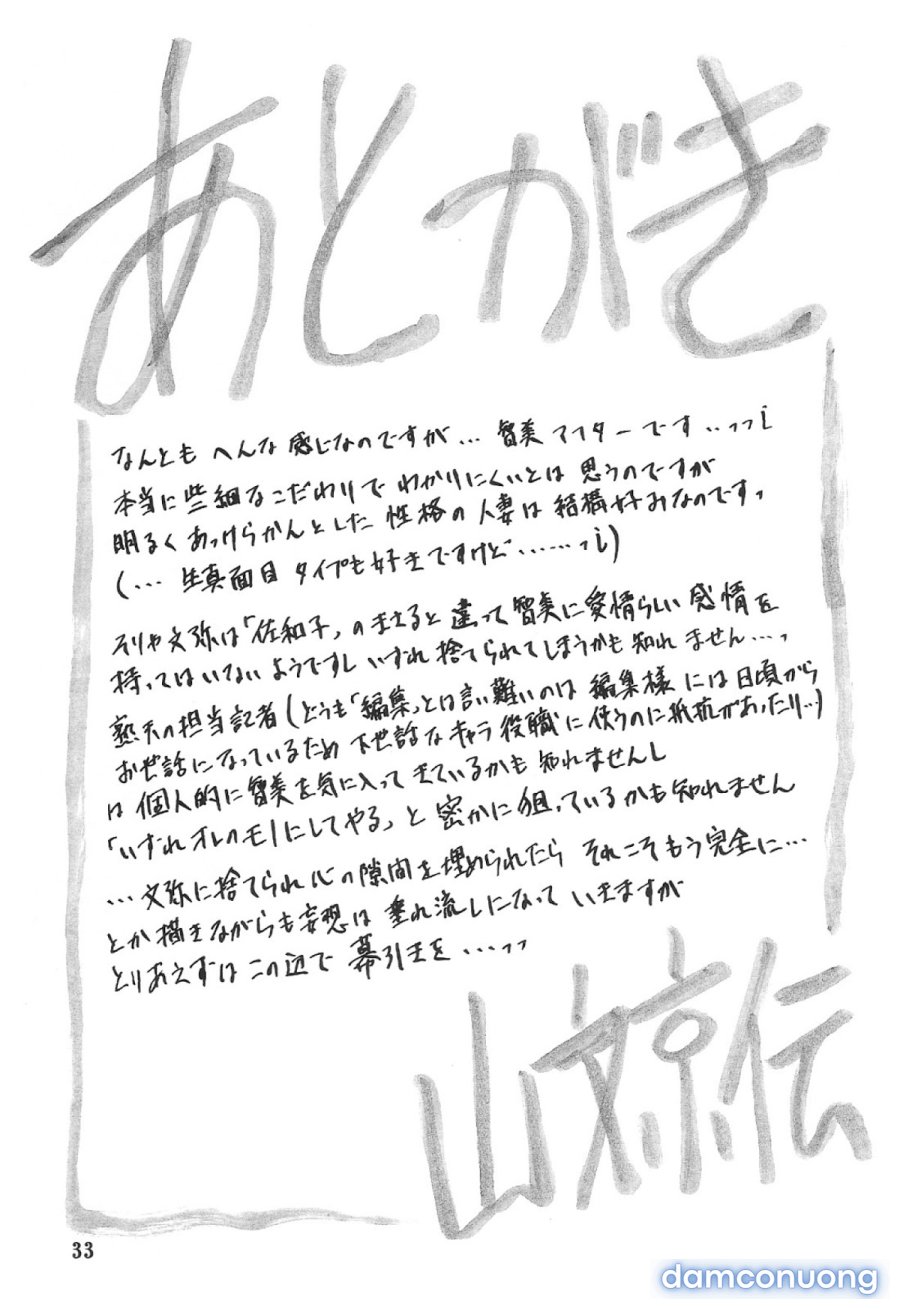 あとがき
なんとも へんな 感じなのですが… 智美 アフターです‥‥っっ¡
本当に些細なこだわりで わかりにくいとは 思うのですが
明るく あっけらかんとした 性格の 人妻は 結構好みなのです、
(… 生真面目 タイプも好きですけど……っ¡)
そりゃ文弥は「佐和子」の まさると 違って 智美に愛情らしい 感情を
持ってはいない ようですし いずれ 捨てられてしまうかも 知れ ません…、
熟天の担当記者(どうも「編集」とは言い難いのは 編集様 には 日頃から
お世話になっているため 下世話な キャラ 役職 に 使うのに 抵抗があったり…)
は 個人的に 智美を気に入って きているかも 知れませんし
「いずれオレのモノにしてやる」と 密かに狙っているかも知れません
… 文弥に捨てられ心の隙間を埋められたら それこそもう完全に…
とか描きながらも妄想は 垂れ流しになって いきますが
とりあえずは この辺で 幕引きを …っっ
山文京伝
33
damconuong